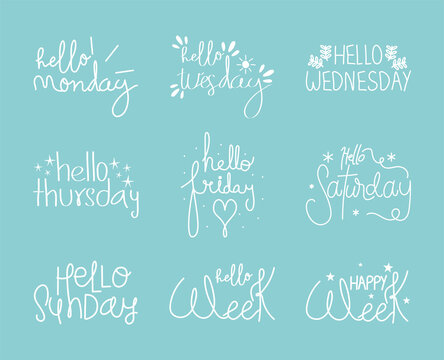 hello
monday
hello
wesday
HELLO
WEDNESDAY
hello
thursday
hello
friday
Hello
Saturday
HELLO
SUNDAY
hello
Week
HAPPY
Week